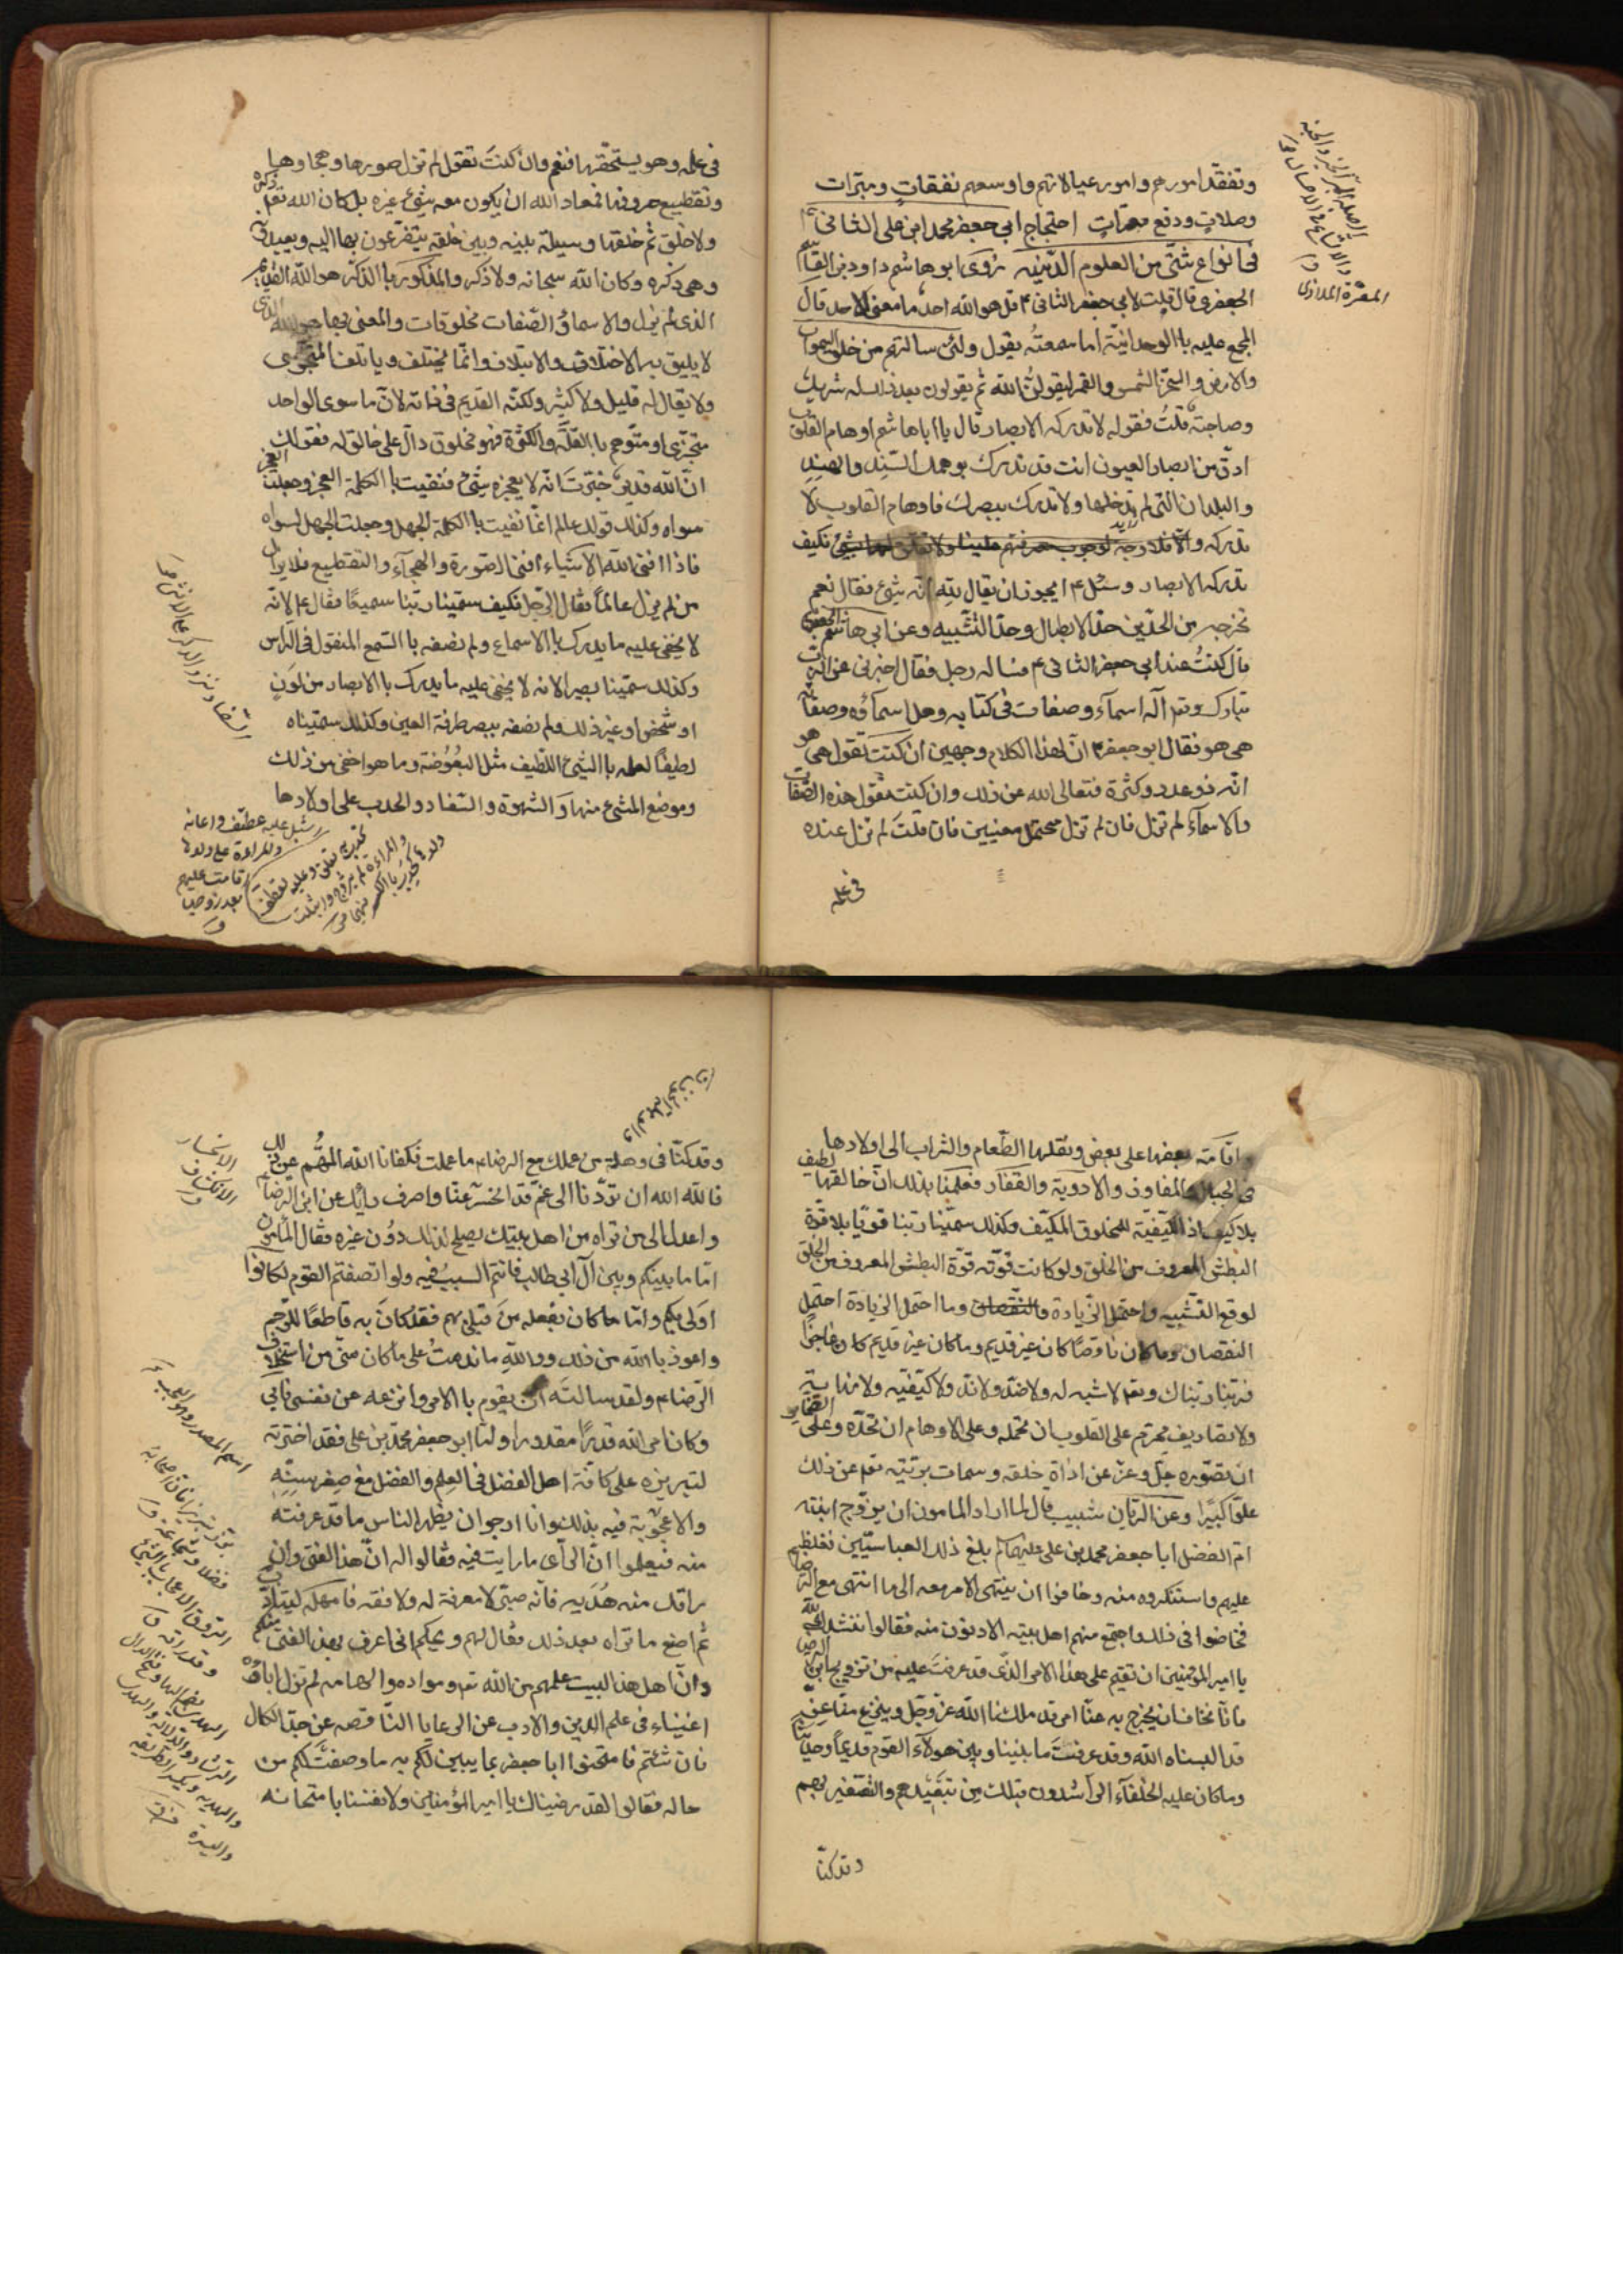 وتفقد امورهم وامور عيالاتهم واوسعهم نفقات ومبرات
وصلات ودفع معرات احتجاج ابي جعفر محمد ابن على الثانى ع
فى انواع شتى من العلوم الدينيه روى ابو هاشم داود بن القاسم
الجعفرى قال قلت لابى جعفر الثانى ع قل هو الله احد ما معنى الاحد قال
المجمع عليه باالوحدانية اما سمعته يقول ولئن سالتهم من خلق السموات
والارض وسخر الشمس والقمر ليقولن الله ثم يقولون بعد ذلك له شريك
وصاحبة قلت فقوله لا تدركه الابصار قال يا اباهاشم اوهام القلوب
ادق من ابصار العيون انت قد تدرك بوهمك السند والهند
والبلدان التى لم تدخلها ولا تدرك ببصرك فاوهام القلوب لا
تدركه فكيف
تدركه الابصار وسئل ع ايجوز ان يقال لله انه شيئ فقال نعم
تخرجه من الحدين حد الابطال وحد التشبيه وعن ابي هاشم الجعفرى
قال كنت عند ابى جعفر الثانى ع فساله رجل فقال اخبرنى عن الرب
تبارك وتعم اله اسمآء وصفات فى كتابه وهل اسمآؤه وصفاته
هى هو فقال ابو جعفر ع ان لهذا الكلام وجهين ان كنت تقول هى هو
انه ذو عدد وكثرة فتعالى الله عن ذلك وان كنت تقول هذه الصفات
والاسمآء لم تزل فان لم تزل محتمل معنيين فان قلت لم تزل عنده
فى علمه
فى علمه وهو يستحقها فنعم وان كنت تقول لم تزل صورها وهجاوها
وتقطيع حروفها فمعاذ الله ان يكون معه شيئ غيره بل كان الله تعم ذكره
ولا خلق ثم خلقها وسيلة بينه وبين خلقه يتضرعون بها اليه ويعبدونه
وهى ذكره وكان الله سبحانه ولا ذكر والمذكور باالذكر هو الله القديم
الذى لم يزل والاسمآء والصفات مخلوقات والمعنى بها هو الله الذى
لا يليق به الاختلاف والايتلاف وانما يختلف وياتلف المتجزى
ولا يقال له قليل ولا كثير ولكنه القديم فى ذاته لان ما سوى الواحد
متجزى او متوهم باالقلة والكثرة فهو مخلوق دال على خالق له فقولك
ان الله قدير خبرت انه لا يعجزه شيئ فنفيت باالكلمة العجز وجعلت العجز
سواه وكذلك قولك عالم انما نفيت باالكلمة الجهل وجعلت الجهل سواه
فاذا افنى الله الاشياء افنى الصورة والهجآء والتقطيع فلا يزال
من لم يزل عالماً فقال الرجل فكيف سمينا ربنا سميعًا فقال ع لانه
لا يخفى عليه ما يدرك باالاسماع ولم نصفه باالسمع المنقول فى الراس
وكذلك سمينا بصيرا لانه لا يخفى عليه ما يدرك باالابصار من لون
او شخص او غير ذلك ولم نصفه ببصر طرفة العين وكذلك سميناه
لطيفاً لعلمه باالشيئ اللطيف مثل البعوضة وما هو اخفى من ذلك
وموضع المشى منها والشهوة والسفاد والحدب على اولادها
واقامة بعضها على بعض ونقلها الطعام والشراب الى اولادها
فى الجبال والمفاوز والاودية والقفار فعلمنا بذلك ان خالقها لطيف
بلا كيف اذ الكيفية للمخلوق المكيف وكذلك سمينا ربنا قويا بلا قوة
البطش المعروف من الخلق ولو كانت قوته قوة البطش المعروف من الخلق
لوقع التشبيه واحتمل الزيادة وما احتمل الزيادة احتمل
النقصان وما كان ناقصًا كان غير قديم وما كان غير قديم كان عاجزاً
فربنا تبارك وتعم لا شبه له ولا ضد ولا ند ولا كيفيه ولا نهاية
ولا تصاديف محرم على القلوب ان تحمله وعلى الاوهام ان تحده وعلى الضماير
ان تصوره جل وعز عن اداة خلقه وسمات بريته تعم عن ذلك
علوا كبيرًا وعن الريان شبيب قال لما اراد المامون ان يزوج ابنته
ام الفضل ابا جعفر محمد بن على عليهما بلغ ذلك العباسيين فغلظ
عليهم واستنكروه منه وخافوا ان ينتهى الامر معه الى ما انتهى مع الرضا
فخاضوا فى ذلك واجتمع منهم اهل بيته الادنون منه فقالوا ننشدك الله
يا امير المؤمنين ان تقيم على هذا الامر الذى قد عزمت عليه من تزويج ابن الرضا
فانا نخاف ان يخرج به عنا امر قد ملكنا الله عز وجل وينزع منا عز
قد البسناه الله وقد عرفت ما بيننا وبين هولآء القوم قديماً وحديثا
وما كان عليه الخلفآء الراشدون قبلك من تبعيدهم والتصغير بهم
وقد كنا
وقد كنا فى وهلة من عملك مع الرضاء ما عملت فكفانا الله المهم من ذلك
فالله الله ان تردنا الى غم قد انحسر عنا واصرف رايك عن ابن الرضا
واعدل الى من تراه من اهل بيتك يصلح لذلك دون غيره فقال المأمون
اما ما بينكم وبين آل ابى طالب فانتم السبب فيه ولو انصفتم القوم لكانوا
اولى بكم واما ما كان يفعله من قبلى بهم فقد كان به قاطعًا للرحم
واعوذ باالله من ذلك ووالله ما ندمت على ما كان منى من استخلاف
الرضاء ولقد سالته ان يقوم باالامر وانزعه عن نفسى فابى
وكان امر الله قدراً مقدورا واما ابو جعفر محمد بن على فقد اخترته
لتبريزه على كافة اهل الفضل فى العلم والفضل مع صغر سنه
والاعجوبة فيه بذلك وانا ارجو ان يظهر الناس ما قد عرفته
منه فيعلموا ان الراى ما رايت فيه فقالوا له ان هذا الفتى وان
راقك منه هديه فانه صبى لا معرفة له ولا فقه فامهله ليتادب
ثم اصنع ما تراه بعد ذلك فقال لهم ويحكم انى اعرف بهذا الفتى منكم
وان اهل هذا البيت علمهم من الله تعم ومواده والهامه لم تزل اباؤه
اغنياء فى علم الدين والادب عن الرعايا الناقصه عن حد الكمال
فان شئتم فامتحنوا ابا جعفر بما يبين لكم به ما وصفت لكم من
حاله فقالوا لقد رضيناك يا امير المؤمنين ولانفسنا بامتحانه